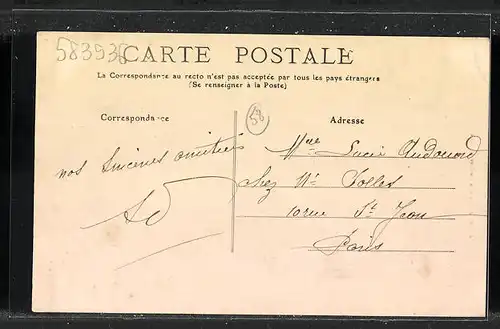 583936
CARTE POSTALE
La Correspondance au recto n'est pas acceptée par tous les pays étrangers
(Se renseigner à la Poste)
Correspondance
58
Adresse
nos sincères amitiés
Mlle Lucie Audouard
chez Mr Solles
10 rue St Jean
Paris